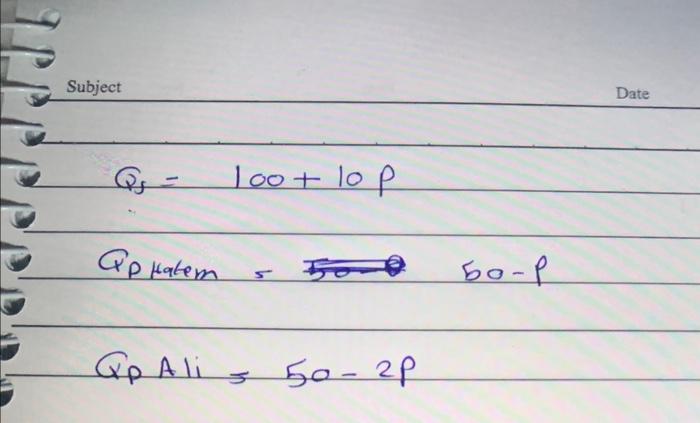 Subject Date
Qs = 100 + 10 P
QD Hatem = 50 - P
QD Ali = 50 - 2P